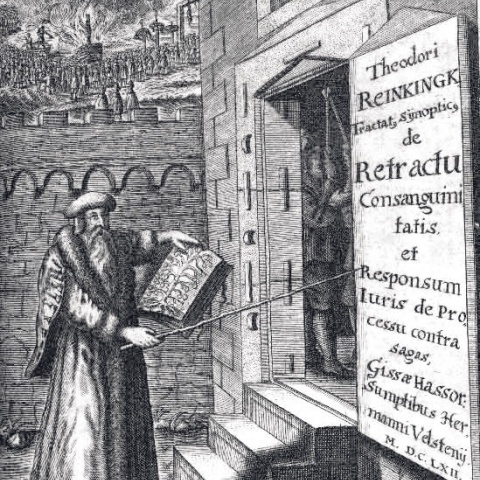 Theodori
REINKINGK
Tractat, Synoptic,
de
Retractu
Consanguini
tatis.
et
Responsum
Iuris de Pro
cessu contra
sagas,
Gissæ Hassor.
Sumptibus Her
manni Velstenij.
M. D C. LXII.